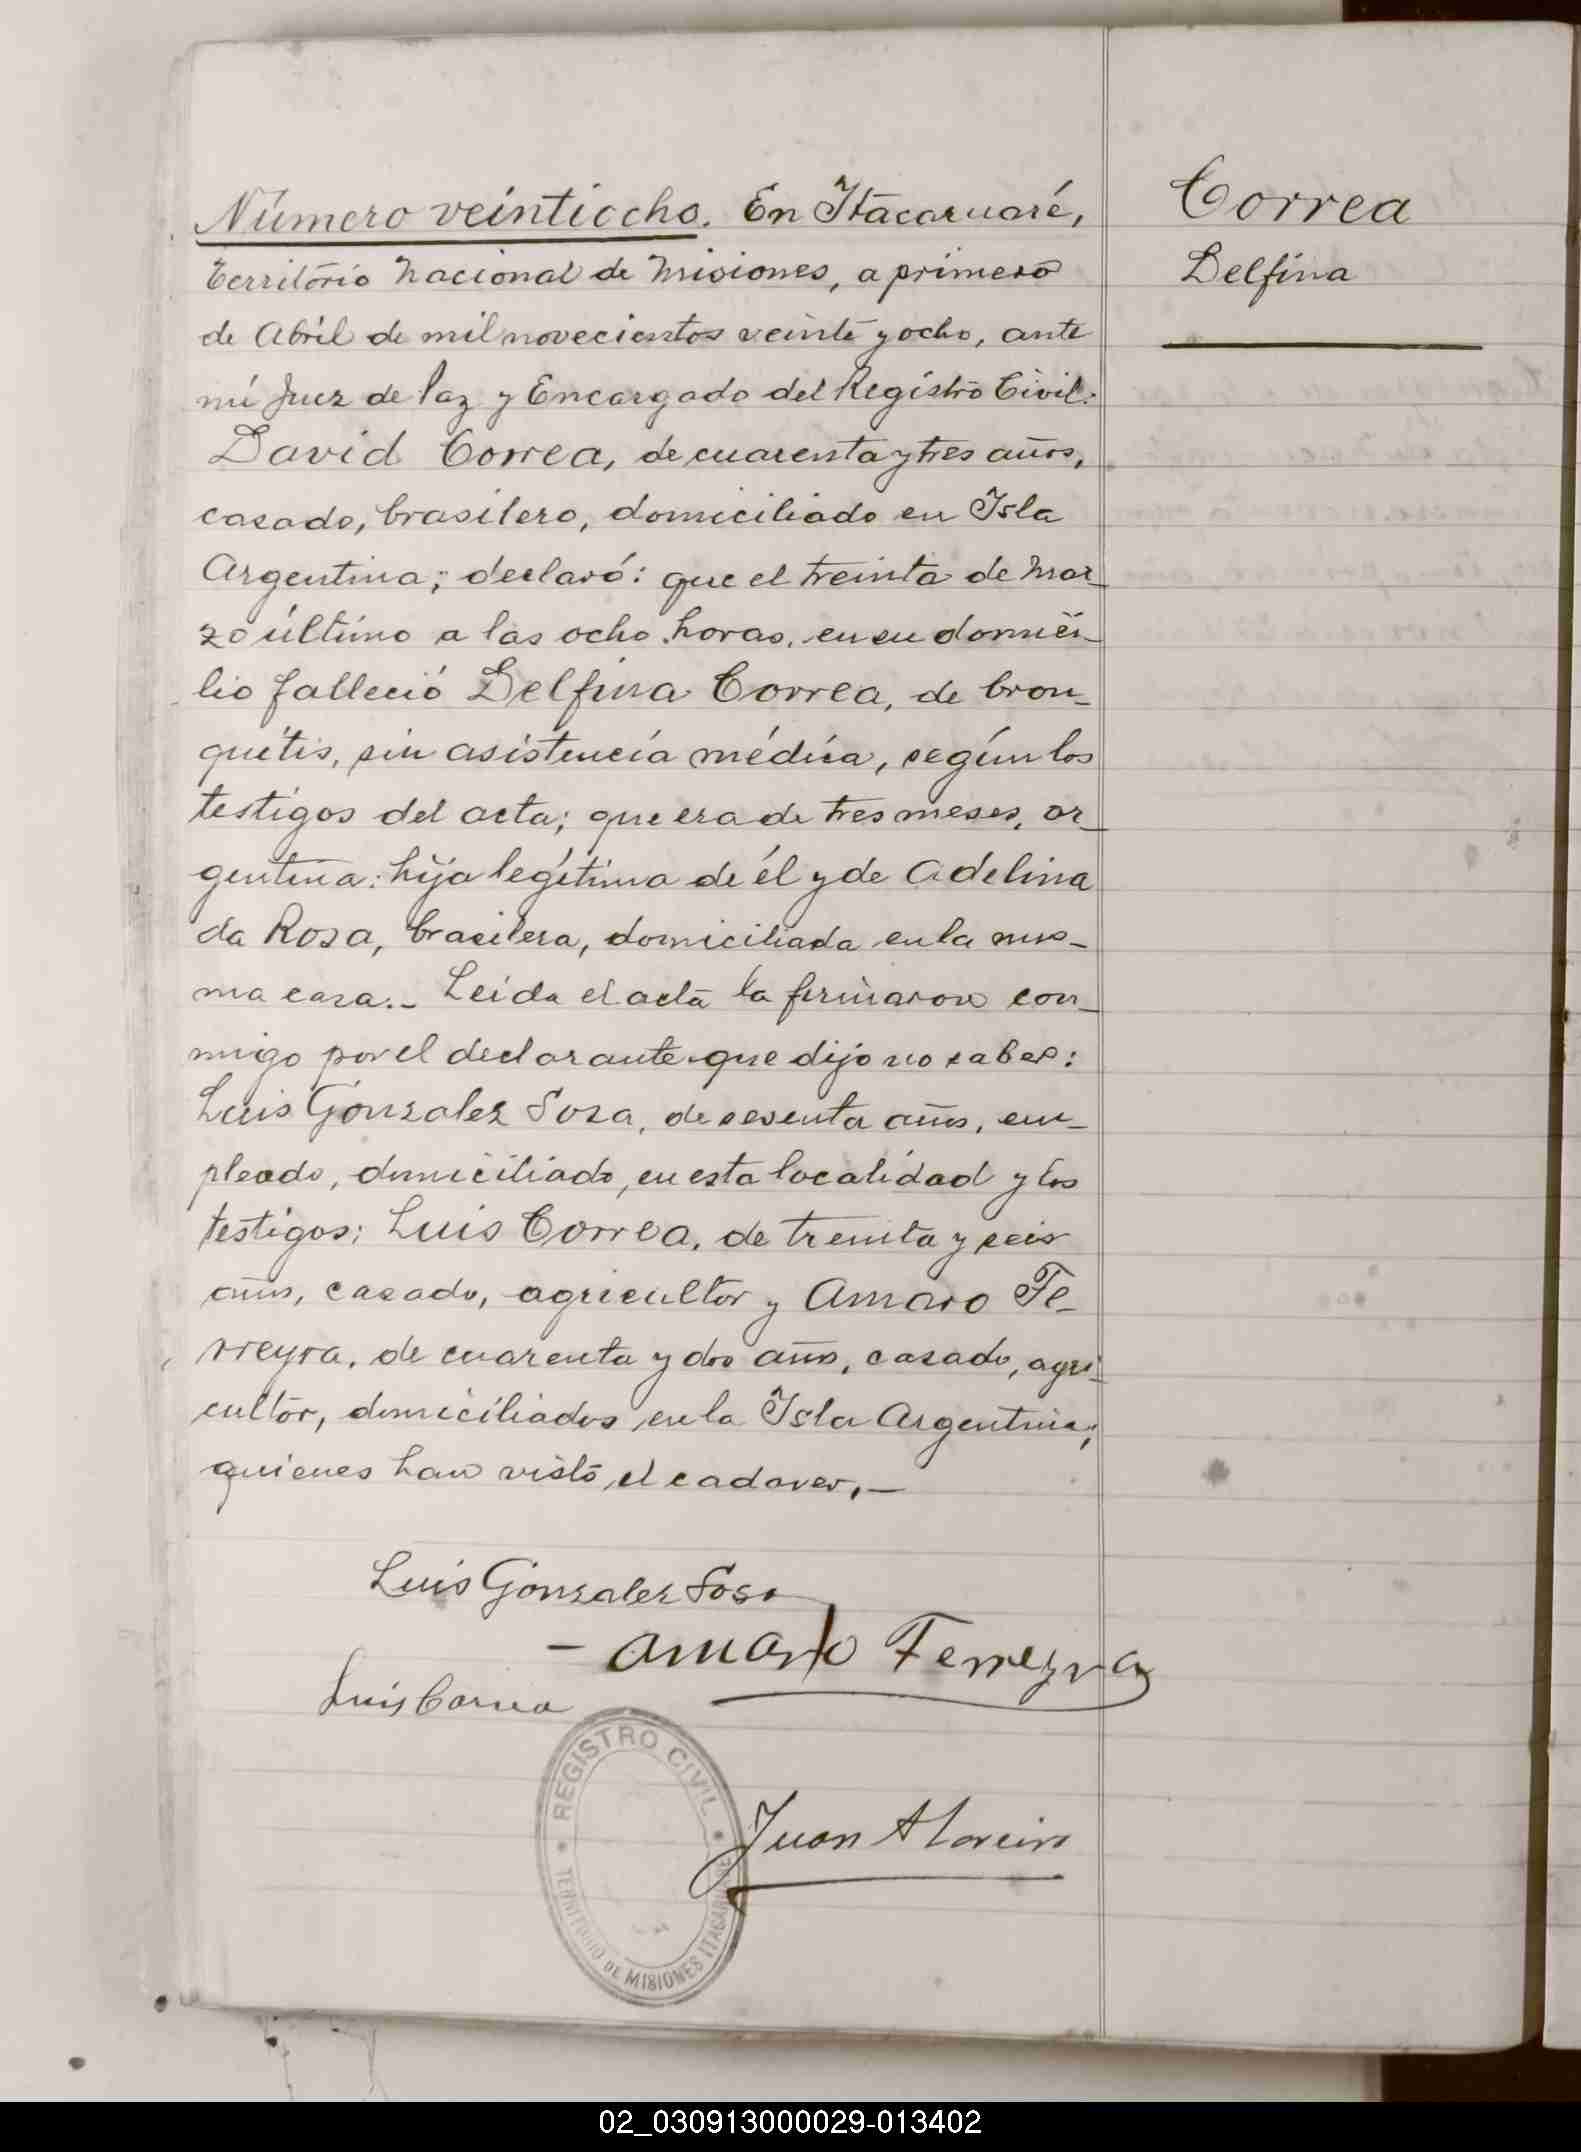 Número veintiocho. En Itacaruaré,
Correa
Delfina
Territorio Nacional de Misiones, a primero
de Abril de mil novecientos veinte y ocho, ante
mí Juez de Paz y Encargado del Registro Civil:
David Correa, de cuarenta y tres años,
casado, brasilero, domiciliado en Isla
Argentina; declaró: que el treinta de Mar-
zo último a las ocho horas, en su domici-
lio falleció Delfina Correa, de bron-
quitis, sin asistencia médica, según los
testigos del acta; que era de tres meses, ar-
gentina; hija legítima de él y de Adelina
da Rosa, brasilera, domiciliada en la mis-
ma casa.- Leida el acta la firmaron con-
migo por el declarante que dijo no saber:
Luis Gonzalez Sosa, de sesenta años, em-
pleado, domiciliado, en esta localidad y los
testigos: Luis Correa, de treinta y seis
años, casado, agricultor y Amaro Fe-
rreyra, de cuarenta y dos años, casado, agri-
cultor, domiciliados en la Isla Argentina;
quienes han visto el cadaver.-
Luis Gonzalez Sosa
- Amaro Ferreyra
Luis Correa
REGISTRO CIVIL
TERRITORIO DE MISIONES ITACARUARE
Juan
02_030913000029-013402